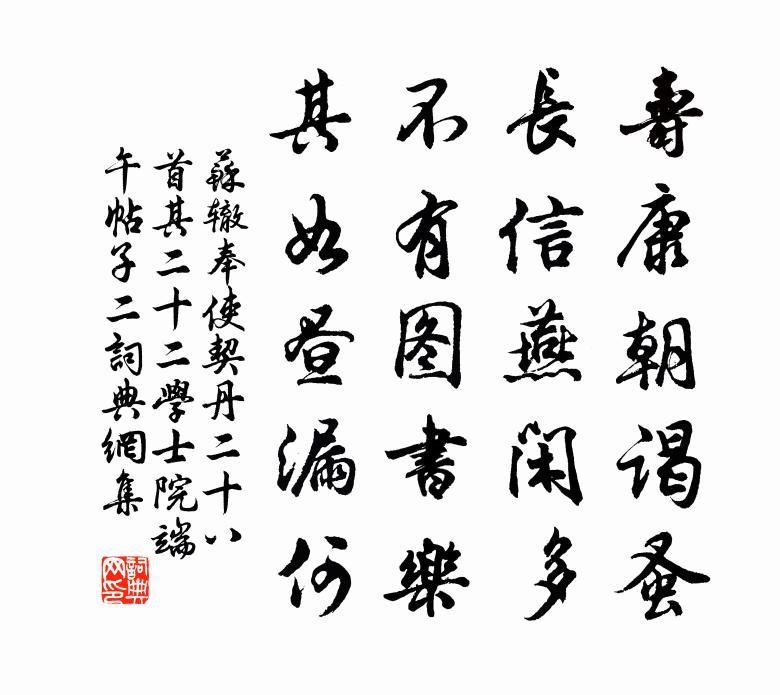 壽康朝谒蚤
長信燕闲多
不有图書樂
其如昼漏何
蘇辙奉使契丹二十八
首其二十二學士院端
午帖子二詞典網集
詞典网印